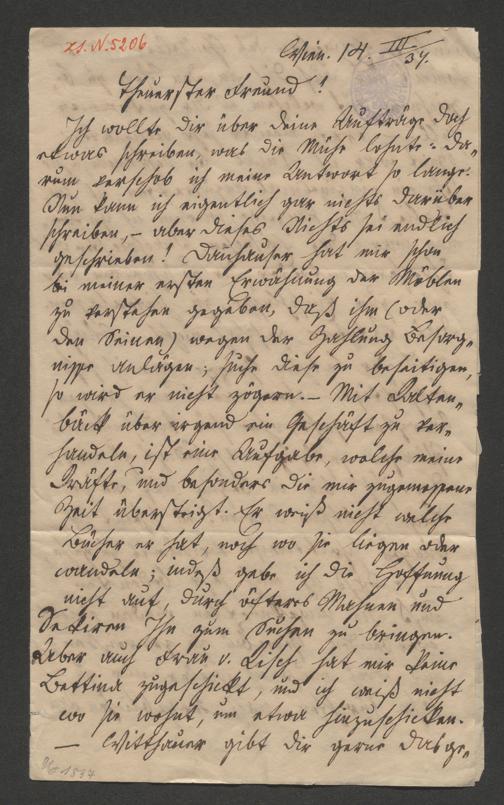 z1.N.5206
Wien. 14. III/37.
Theuerster Freund!
Ich wollte Dir über Deine Aufträge doch
etwas schreiben, was die Mühe lohnte: da-
rum verschob ich meine Antwort so lange.
Nun kann ich eigentlich gar nichts darüber
schreiben, – aber dieses Nichts sei endlich
geschrieben! Danhauser hat mir schon
bei meiner ersten Erwähnung der Möblen
zu verstehen gegeben, daß ihm (oder
den Seinen) wegen der Zahlung Besorg-
nisse anlägen; suche diese zu beseitigen,
so wird er nicht zögern. – Mit Kalten-
bäck über irgend ein Geschäft zu ver-
handeln, ist eine Aufgabe, welche meine
Kräfte, und besonders die mir zugemessene
Zeit übersteigt. Er weiß nicht welche
Bücher er hat, noch wo sie liegen oder
wandeln; indeß gebe ich die Hoffnung
nicht auf, durch öfteres Mahnen und
Sekiren Ihn zum Suchen zu bringen.
Aber auch Frau v. Lisch hat mir keine
Bettina zugeschickt, und ich weiß nicht
wo sie wohnt, um etwa hinzuschicken.
– Witthauer gibt Dir gerne das ge-
1837